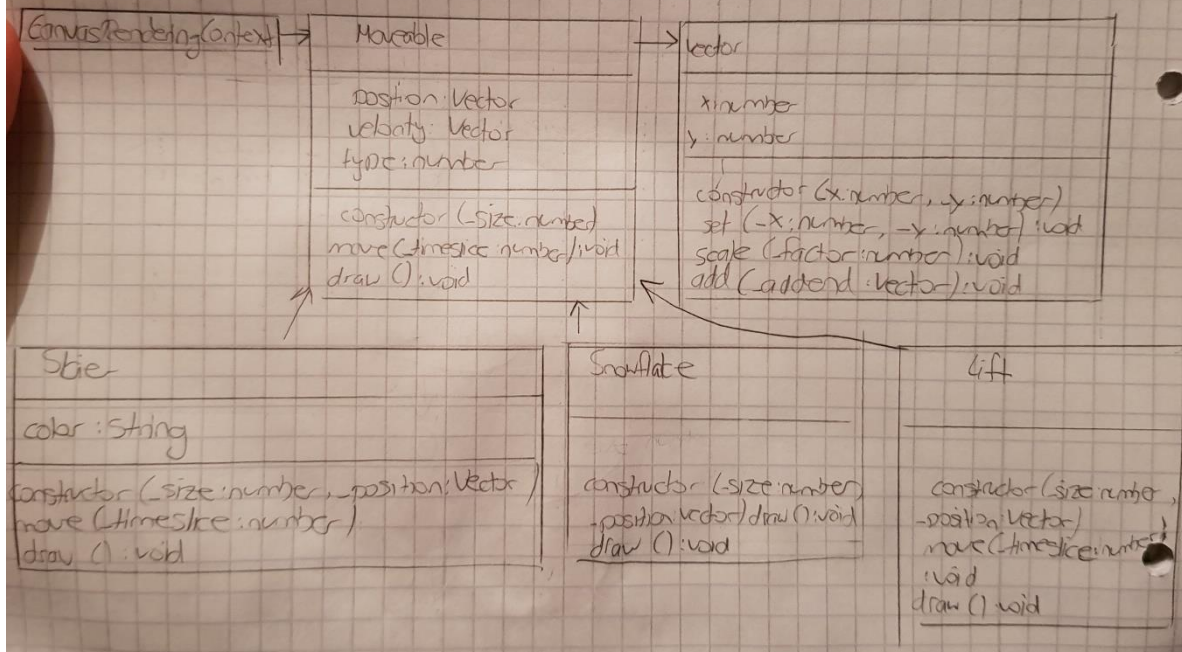 CanvasRenderingContext
Moveable
position: Vector
velocity: Vector
type: number
constructor (_size: number)
move (_timeslice: number): void
draw (): void
Vector
x: number
y: number
constructor (x: number, _y: number)
set (_x: number, _y: number): void
scale (_factor: number): void
add (_addend: Vector): void
Skier
color: String
constructor (_size: number, _position: Vector)
move (_timeslice: number)
draw (): void
Snowflake
constructor (_size: number
_position: Vector) draw (): void
draw (): void
Lift
constructor (size: number,
_position: Vector)
move (_timeslice: number)
: void
draw () void